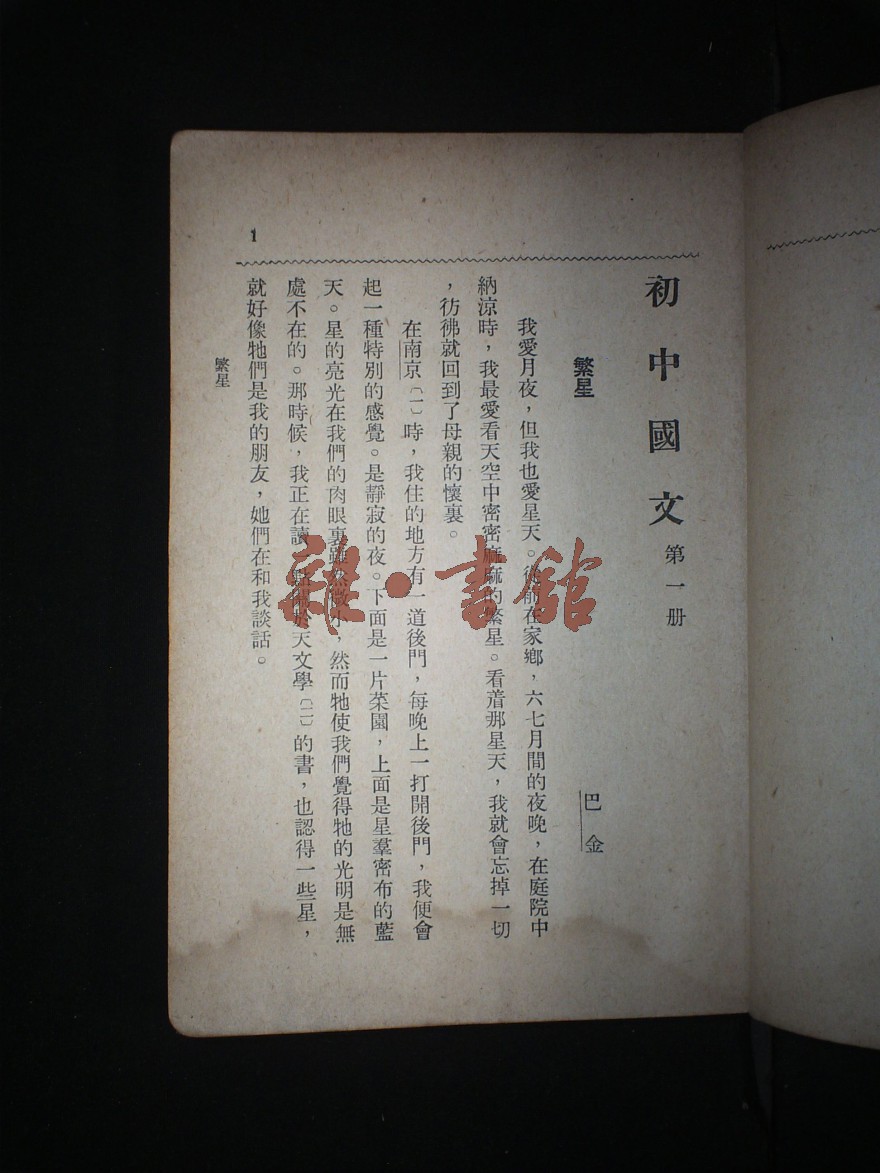 初中國文 第一册
繁星
巴金
我愛月夜，但我也愛星天。從前在家鄉，六七月間的夜晚，在庭院中
納涼時，我最愛看天空中密密麻麻的繁星。看着那星天，我就會忘掉一切
，彷彿就回到了母親的懷裏。
在南京〔一〕時，我住的地方有一道後門，每晚上一打開後門，我便會
起一種特別的感覺。是靜寂的夜。下面是一片菜園，上面是星羣密布的藍
天。星的亮光在我們的肉眼裏雖然微小，然而牠使我們覺得牠的光明是無
處不在的。那時候，我正在讀一點關於天文學〔二〕的書，也認得一些星，
就好像牠們是我的朋友，她們在和我談話。
繁星
1
雜·書館